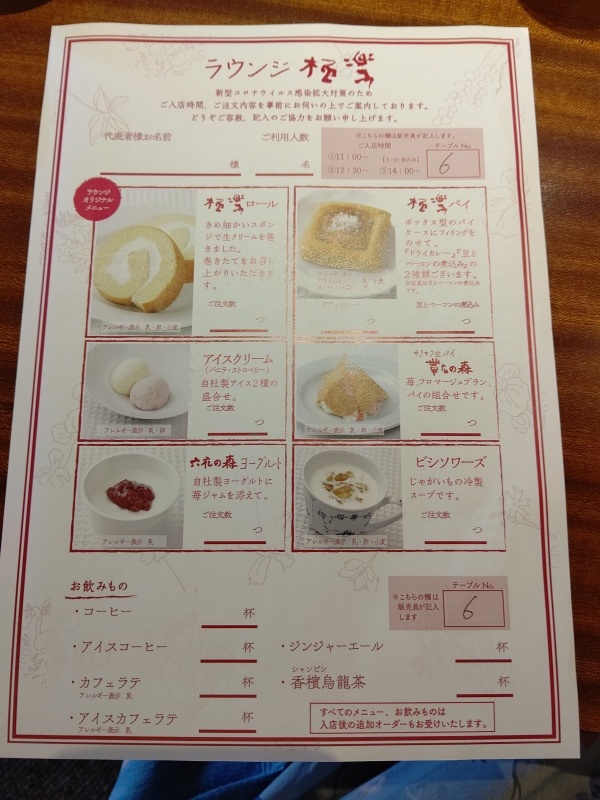 ラウンジ 極楽
新型コロナウイルス感染拡大対策のため
ご入店時間、ご注文内容を事前にお伺いの上でご案内しております。
どうぞご容赦、記入のご協力をお願い申し上げます。
代表者様お名前
様
ご利用人数
名
※こちらの欄は販売員が記入します。
ご入店時間
①11:00〜
②12:30〜 ③14:00〜
テーブルNo.
6
ラウンジ
オリジナル
メニュー
極楽ロール
きめ細かいスポン
ジで生クリームを巻
きました。
巻きたてをお召し
上がりいただきま
す。
ご注文数
つ
アレルギー表示 乳・卵・小麦
極楽パイ
ボックス型のパイ
ケースにフィリングを
のせて。
『ドライカレー』『豆と
ベーコンの煮込み』の
2種類ございます。
※写真は豆とベーコンの煮込み
です。
豆とベーコンの煮込み
つ
アイスクリーム
(バニラ・ストロベリー)
自社製アイス2種の
盛合せ。
ご注文数
つ
アレルギー表示 乳・卵
サクサク生パイ
苺、フロマージュブラン、
パイの組合せです。
ご注文数
つ
アレルギー表示 乳・卵・小麦
六花の森 ヨーグルト
自社製ヨーグルトに
苺ジャムを添えて。
ご注文数
つ
アレルギー表示 乳
ビシソワーズ
じゃがいもの冷製
スープです。
ご注文数
つ
アレルギー表示 乳・卵・小麦
お飲みもの
テーブルNo.
※こちらの欄は
販売員が記入
します
6
・コーヒー 杯
・アイスコーヒー 杯
・カフェラテ 杯
アレルギー表示 乳
・アイスカフェラテ 杯
アレルギー表示 乳
・ジンジャーエール 杯
シャンピン
・香檳烏龍茶 杯
すべてのメニュー、お飲みものは
入店後の追加オーダーもお受けいたします。